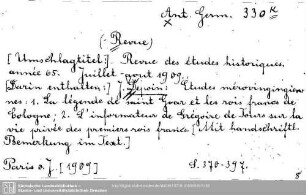 Ant. Germ. 330ᵏ
(- Revue)
[Umschlagtitel]. Revue des études historiques,
année 65. Juillet-août 1909.
[Darin enthalten:] J. Depoin: Études mérovingiennes:
1. La légende de saint Goar et les rois francs de
Cologne; 2. L'informateur de Grégoire de Tours sur la
vie privée des premiers rois francs. [Mit handschriftl.
Bemerkung im Text.]
Paris o. J. [1909] S. 370-397.
8